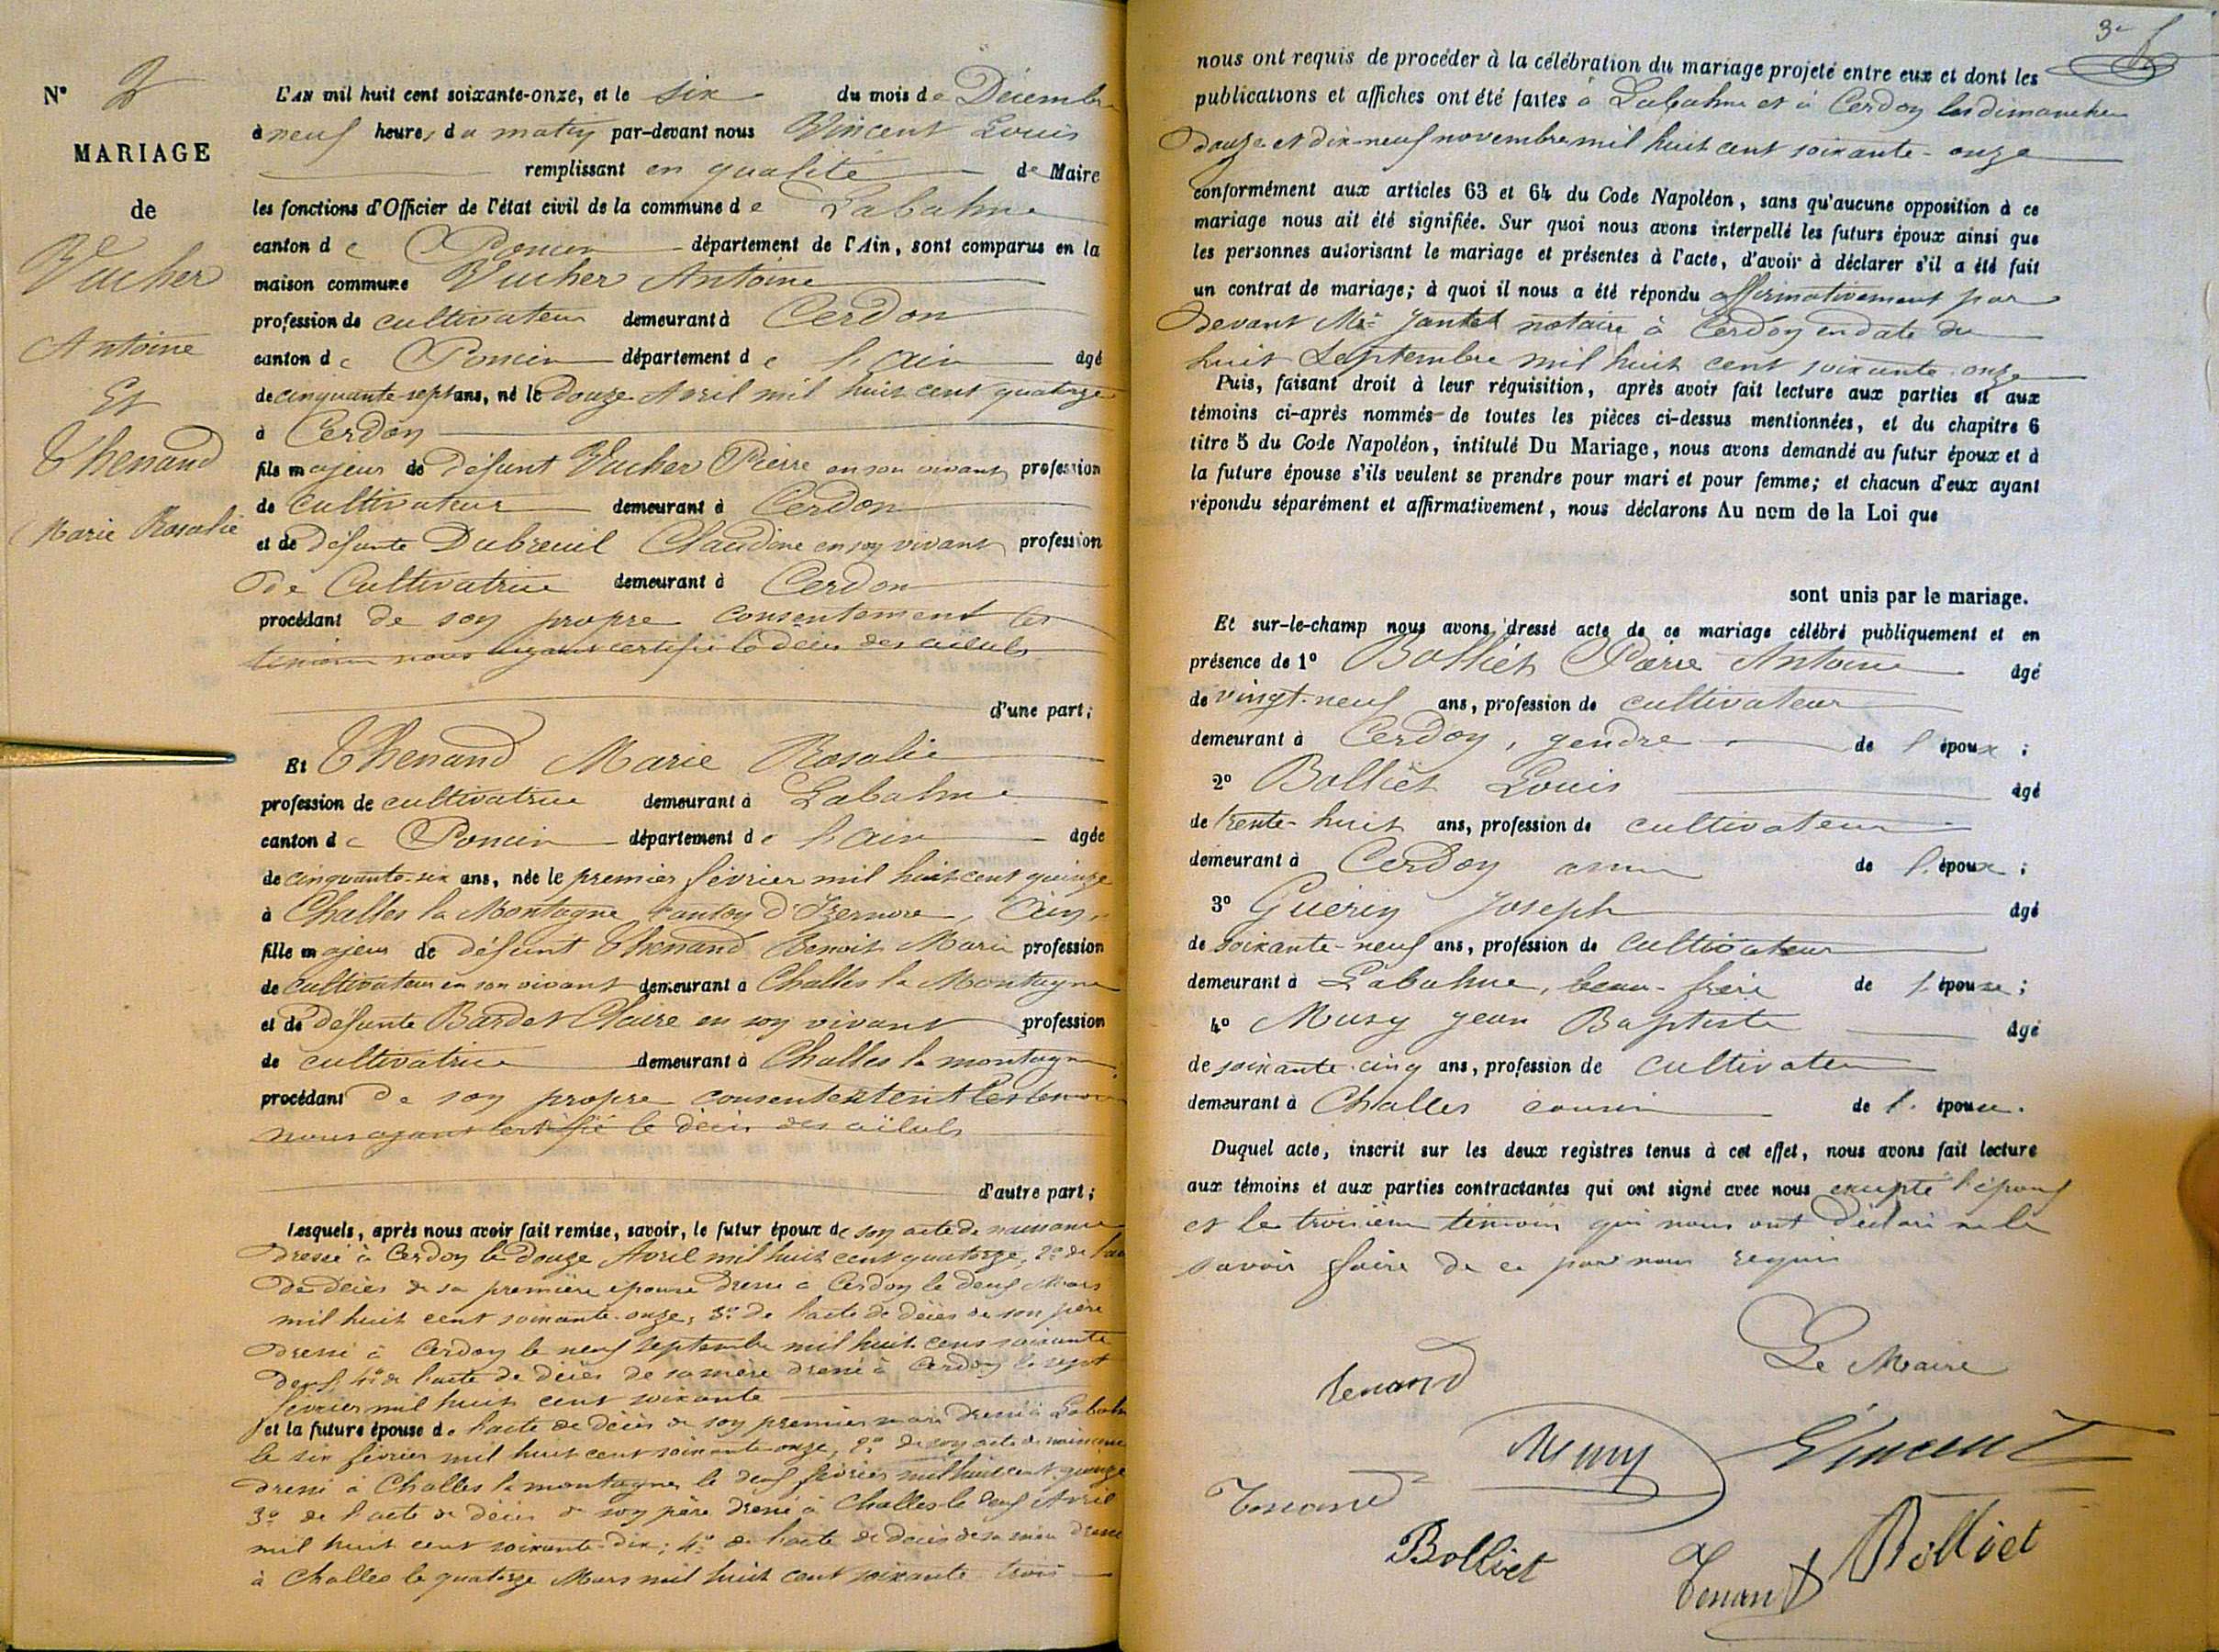 N° 2
MARIAGE
de
Vucher
Antoine
Et
Thenand
Marie Rosalie
L'AN mil huit cent soixante-onze, et le six du mois de Décembre
à neuf heures du matin par-devant nous Vincent Louis
remplissant en qualité de Maire
les fonctions d'Officier de l'état civil de la commune de Labalme
canton de Poncin département de l'Ain, sont comparus en la
maison commune Vucher Antoine
profession de cultivateur demeurant à Cerdon
canton de Poncin département de l'Ain âgé
de cinquante-sept ans, né le Douze Avril mil huit cent quatorze
à Cerdon
fils majeur de défunt Vucher Pierre en son vivant profession
de cultivateur demeurant à Cerdon
et de défunte Dubreuil Claudine en son vivant profession
de Cultivatrice demeurant à Cerdon
procédant de son propre consentement les
témoins nous ayant certifié le décès des aïeuls
d'une part;
Et Thenand Marie Rosalie
profession de cultivatrice demeurant à Labalme
canton de Poncin département de l'Ain âgée
de cinquante-six ans, née le premier février mil huit cent quinze
à Challes la Montagne, canton d'Izernore, Ain,
fille majeur de défunt Thenand Benoit Marie profession
de cultivateur en son vivant demeurant à Challes la Montagne
et de défunte Bardet Claire en son vivant profession
de cultivatrice demeurant à Challes la montagne
procédant de son propre Les témoins
nous ayant certifié le décès des aïeuls
d'autre part;
Lesquels, après nous avoir fait remise, savoir, le futur époux de son acte de naissance
dressé à Cerdon le Douze Avril mil huit cent quatorze, 2° de
de décès de sa première épouse dressé à Cerdon le deux Mars
mil huit cent soixante-onze, 3° de l'acte de décès de son père
dressé à Cerdon le neuf septembre mil huit cent soixante
deux 4° de l'acte de décès de sa mère dressé à Cerdon le sept
février mil huit cent soixante
et la future épouse de l'acte de décès de son premier mari dressé à Labalme
le six février mil huit cent soixante-onze, 2° de son acte de naissance
dressé à Challes la montagne le deux février mil huit cent quinze
3° de l'acte de décès de son père dressé à Challes le deux Avril
mil huit cent soixante-dix; 4° de l'acte de décès de sa mère dressé
à Challes le quatorze Mars mil huit cent soixante trois
3e
nous ont requis de procéder à la célébration du mariage projeté entre eux et dont les
publications et affiches ont été faites à Labalme et à Cerdon les dimanches
douze et dix-neuf novembre mil huit cent soixante-onze
conformément aux articles 63 et 64 du Code Napoléon, sans qu'aucune opposition à ce
mariage nous ait été signifiée. Sur quoi nous avons interpellé les futurs époux ainsi que
les personnes autorisant le mariage et présentes à l'acte, d'avoir à déclarer s'il a été fait
un contrat de mariage; à quoi il nous a été répondu affirmativement par
devant Me Jantet notaire à Cerdon en date du
huit Septembre mil huit cent soixante-onze
Puis, faisant droit à leur réquisition, après avoir fait lecture aux parties et aux
témoins ci-après nommés de toutes les pièces ci-dessus mentionnées, et du chapitre 6
titre 5 du Code Napoléon, intitulé Du Mariage, nous avons demandé au futur époux et à
la future épouse s'ils veulent se prendre pour mari et pour femme; et chacun d'eux ayant
répondu séparément et affirmativement, nous déclarons Au nom de la Loi que
sont unis par le mariage.
Et sur-le-champ nous avons dressé acte de ce mariage célébré publiquement et en
présence de 1° Bolliet Pierre Antoine âgé
de vingt-neuf ans, profession de cultivateur
demeurant à Cerdon, gendre de l'époux;
2° Bolliet Louis âgé
de trente-huit ans, profession de cultivateur
demeurant à Cerdon ami de l'époux;
3° Guérin Joseph âgé
de soixante-neuf ans, profession de cultivateur
demeurant à Labalme, beau-frère de l'épouse;
4° Musy Jean Baptiste âgé
de soixante-cinq ans, profession de cultivateur
demeurant à Challes cousin de l'épouse.
Duquel acte, inscrit sur les deux registres tenus à cet effet, nous avons fait lecture
aux témoins et aux parties contractantes qui ont signé avec nous excepté l'époux
et le troisième témoin qui nous ont déclaré ne le
savoir faire de ce par nous requis
Le Maire
Tenand
Musy
Vincent
Tenand
Bolliet
Tenand
Bolliet